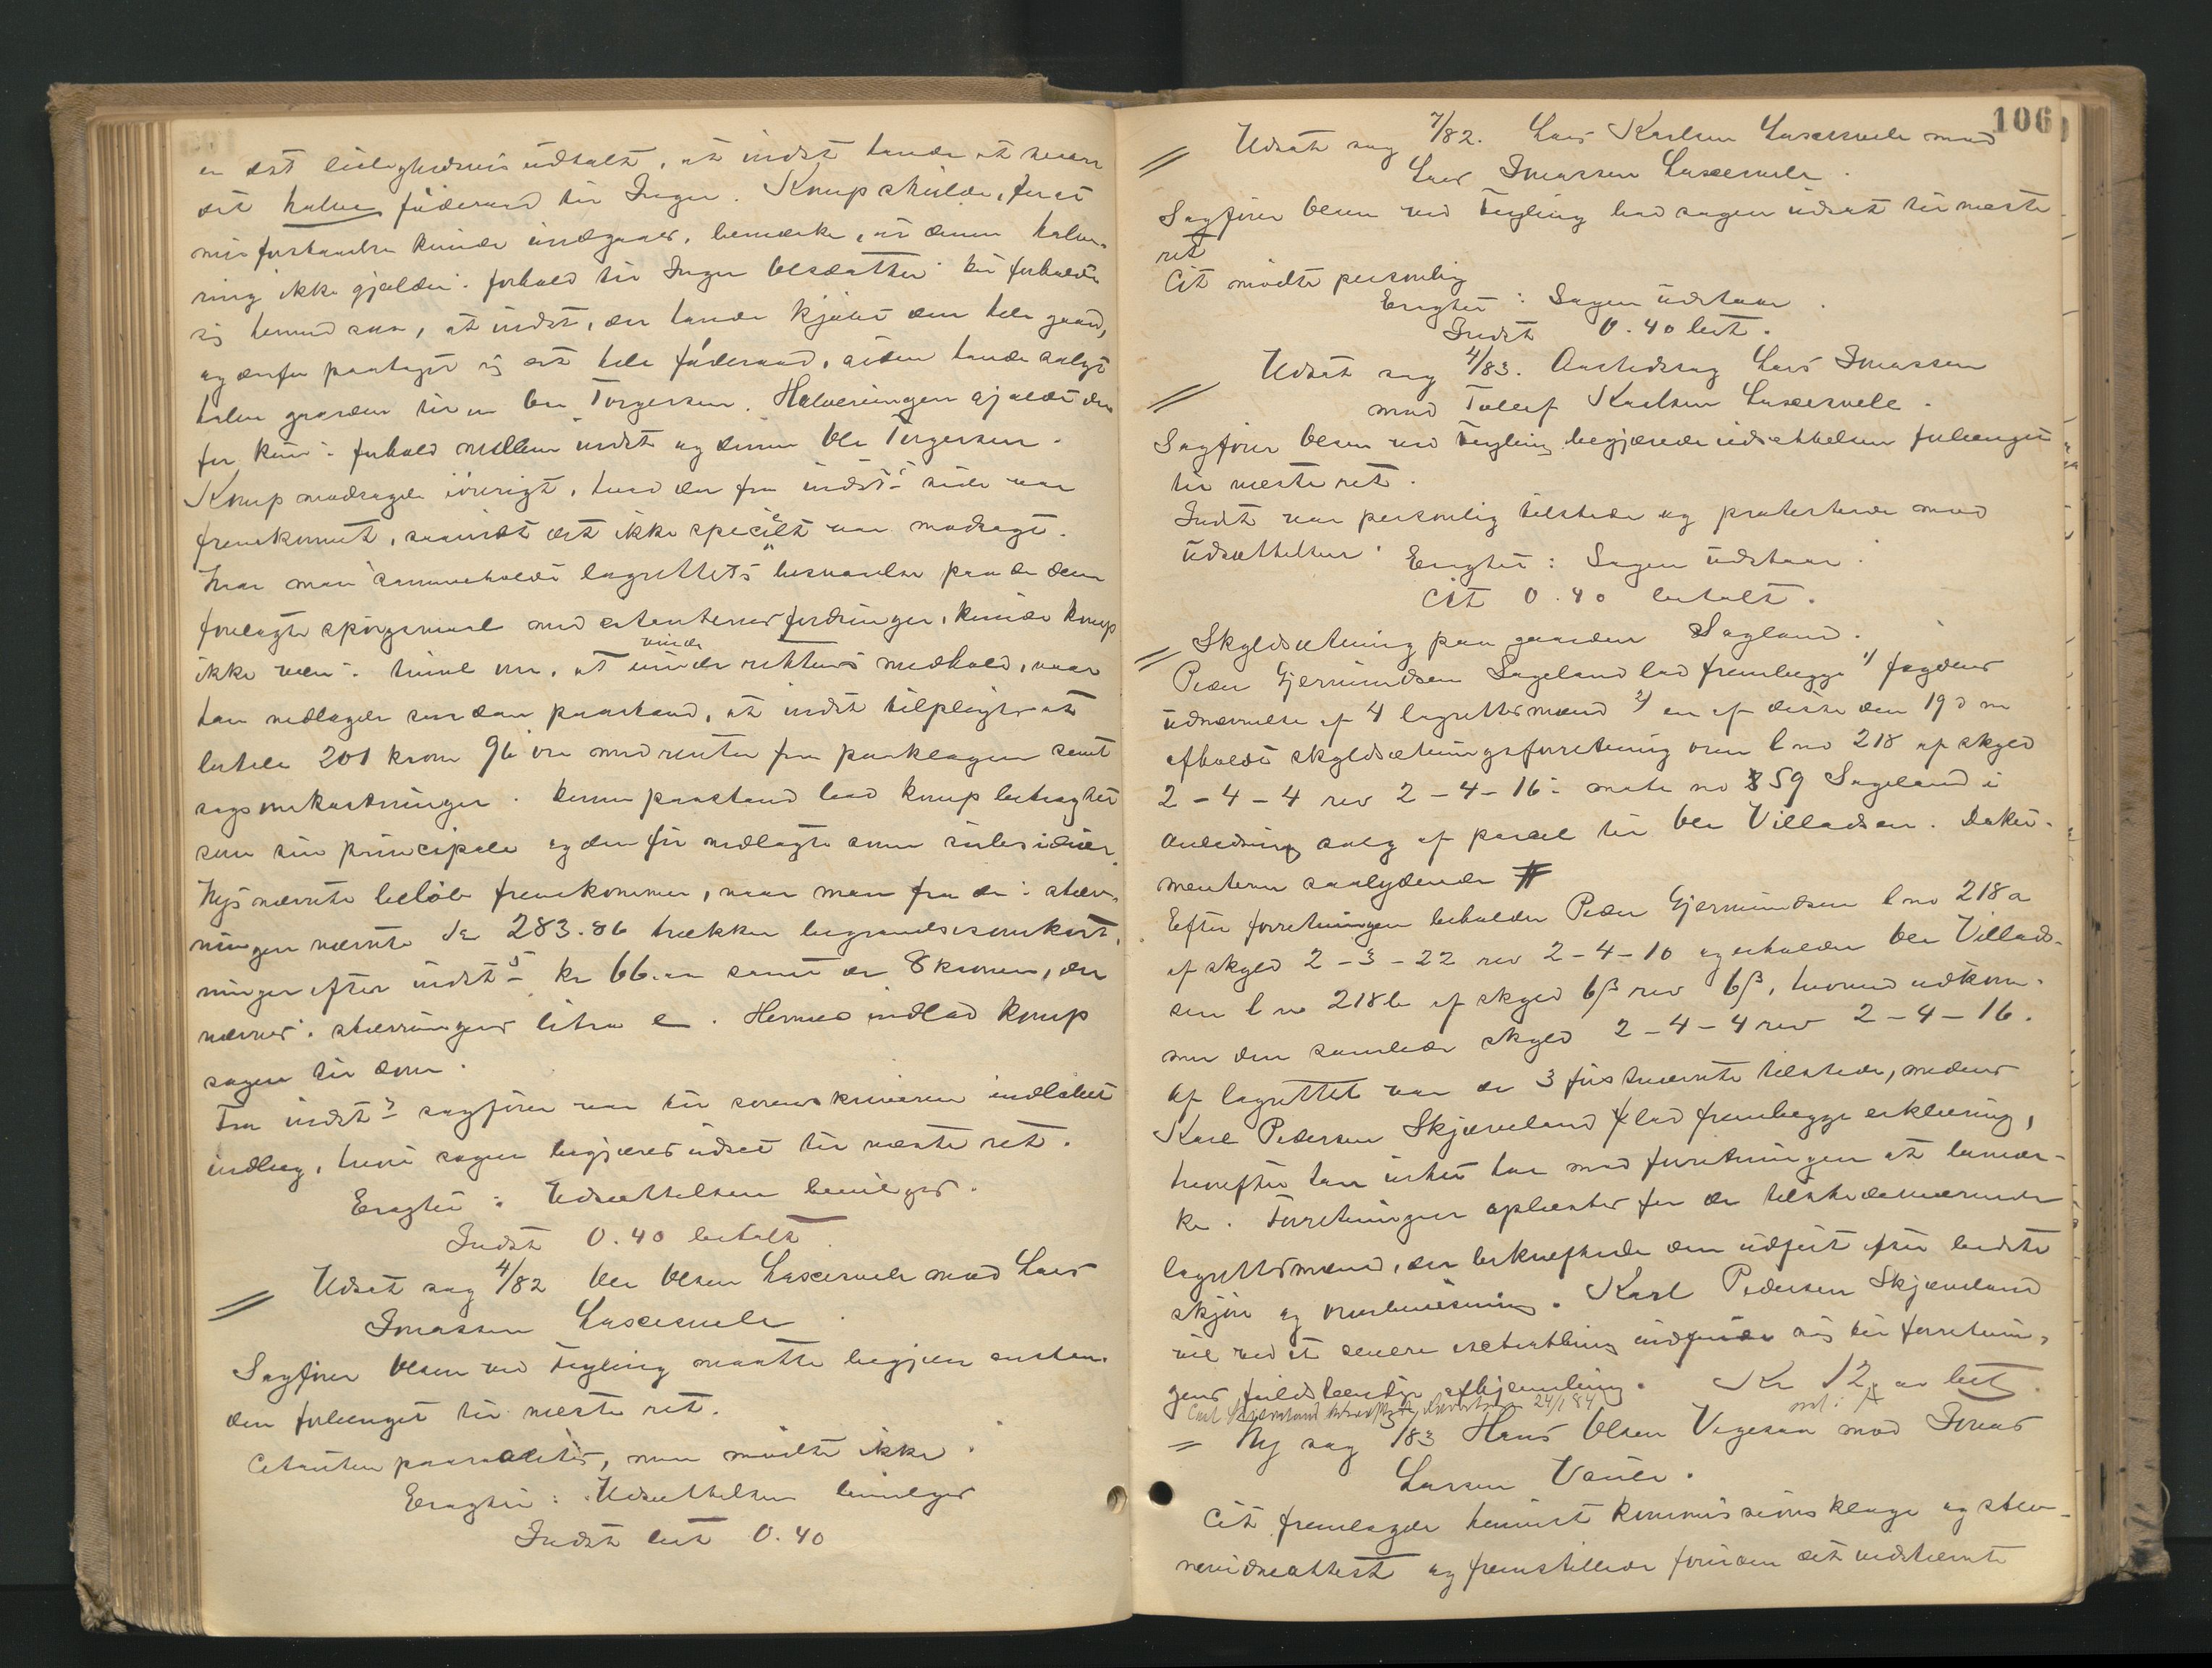 er det leilighedsvis udtalt, at indst havde at svare
det halve føderaad til Inger. Korup skulde, for at
misforstaaelse kunde undgaaes, bemærke, at denne halve-
ring ikke gjælder i forhold til Inger Olsdatter. Det forholdt
sig hermed saa, at indst, der havde kjøbt den hele gaard,
og derfor paataget sig det hele føderaad, siden havde solgt
halve gaarden til en Ole Torgersen. Halveringen gjaldt der-
for kun i forhold mellem indst og denne Ole Torgersen.
Korup modsagde iøvrigt, hvad der fra indsts side var
fremkommet, saavidt det ikke specielt var modsagt.
Naar man sammenholdt lagrettets besvarelse paa de dem
forelagte spørgsmaal med citantens fordringer, kunde Korup
ikke være i tvivl om, at vinde rettens medhold, naar
han nedlagde saadan paastand, at indst tilpligtes at
betale 201 kroner 96 øre med renter fra paaklagen samt
sagsomkostninger. Denne paastand bad Korup betragtet
som sin principale og den før nedlagte som subsidiær.
Nys nævnte beløb fremkommer, naar man fra de i stæv-
ningen nævnte kr 283.86 trækker begravelsesomkost-
ninger efter indsts kr 66. samt de 8 kroner, der
nævnes i stævningens litra e. Hermed indlod Korup
sagen til dom.
Fra indsts sagfører var til sorenskriveren indløbet
indlæg, hvori sagen begjæres udsat til næste ret.
Eragtet: Udsættelsen bevilges.
Indst 0.40 betalt.
Udsat sag 4/82 Ole Olsen Laxesvele mod Lars
Jonassen Laxesvele
Sagfører Olsen ved Tegling maatte begjære anstan-
den forlænget til næste ret.
Citanten paaraabtes, men mødte ikke.
Eragtet: Udsættelsen bevilges
Indst bet 0.40
106
Udsat sag 7/82. Lars Karlsen Laxesvele mod
Lars Jonassen Laxesvele.
Sagfører Olsen ved Tegling bad sagen udsat til næste
ret
Cit mødte personlig
Eragtet: Sagen udstaar.
Indst 0.40 bet.
Udsat sag 4/83. Aastedssag Lars Jonassen
mod Tollef Karlsen Laxesvele.
Sagfører Olsen ved Tegling begjærede udsættelsen forlænget
til næste ret.
Indst var personlig tilstede og protesterede mod
udsættelsen. Eragtet: Sagen udstaar.
Cit 0.40 betalt.
Skyldsætning paa gaarden Sagland.
Peder Gjermundsen Sageland lod fremlægge 1/ fogdens
udnævnelse af 4 lagrettesmænd 2/ en af disse den 19 d m
afholdt skyldsætningsforretning over l no 218 af skyld
2-4-4 rev 2-4-16 i matr no 59 Sageland i
anledning salg af parcel til Ole Villadsen. Doku-
menterne saalydende #
Efter forretningen beholder Peder Gjermundsen l no 218a
af skyld 2-3-22 rev 2-4-10 og erholder Ole Villad-
sen l no 218b af skyld 6β rev 6β, hvorved udkom-
mer den samlede skyld 2-4-4 rev 2-4-16.
Af lagrettet var de 3 førstnævnte tilstede, medens
Karl Pedersen Skjæveland lod fremlægge erklæring,
hvorefter han intet har mod forretningen at bemær-
ke. Forretningen oplæstes for de tilstedeværende
lagrettesmænd, der bekræftede den udført efter bedste
skjøn og overbevisning. Karl Pedersen Skjæveland
vil ved et senere extrating indfinde sig til forretnin-
gens fuldstændige afhjemling. Kr 12. bet
Carl Skjæveland 24/1 84
Ny sag 5/83 Hans Olsen Vegesaa mod Jonas
Larsen Vaule.
Cit fremlagde herimst kommissionsklage og stev-
nevidneattest og fremstillede foruden det vedstævnte